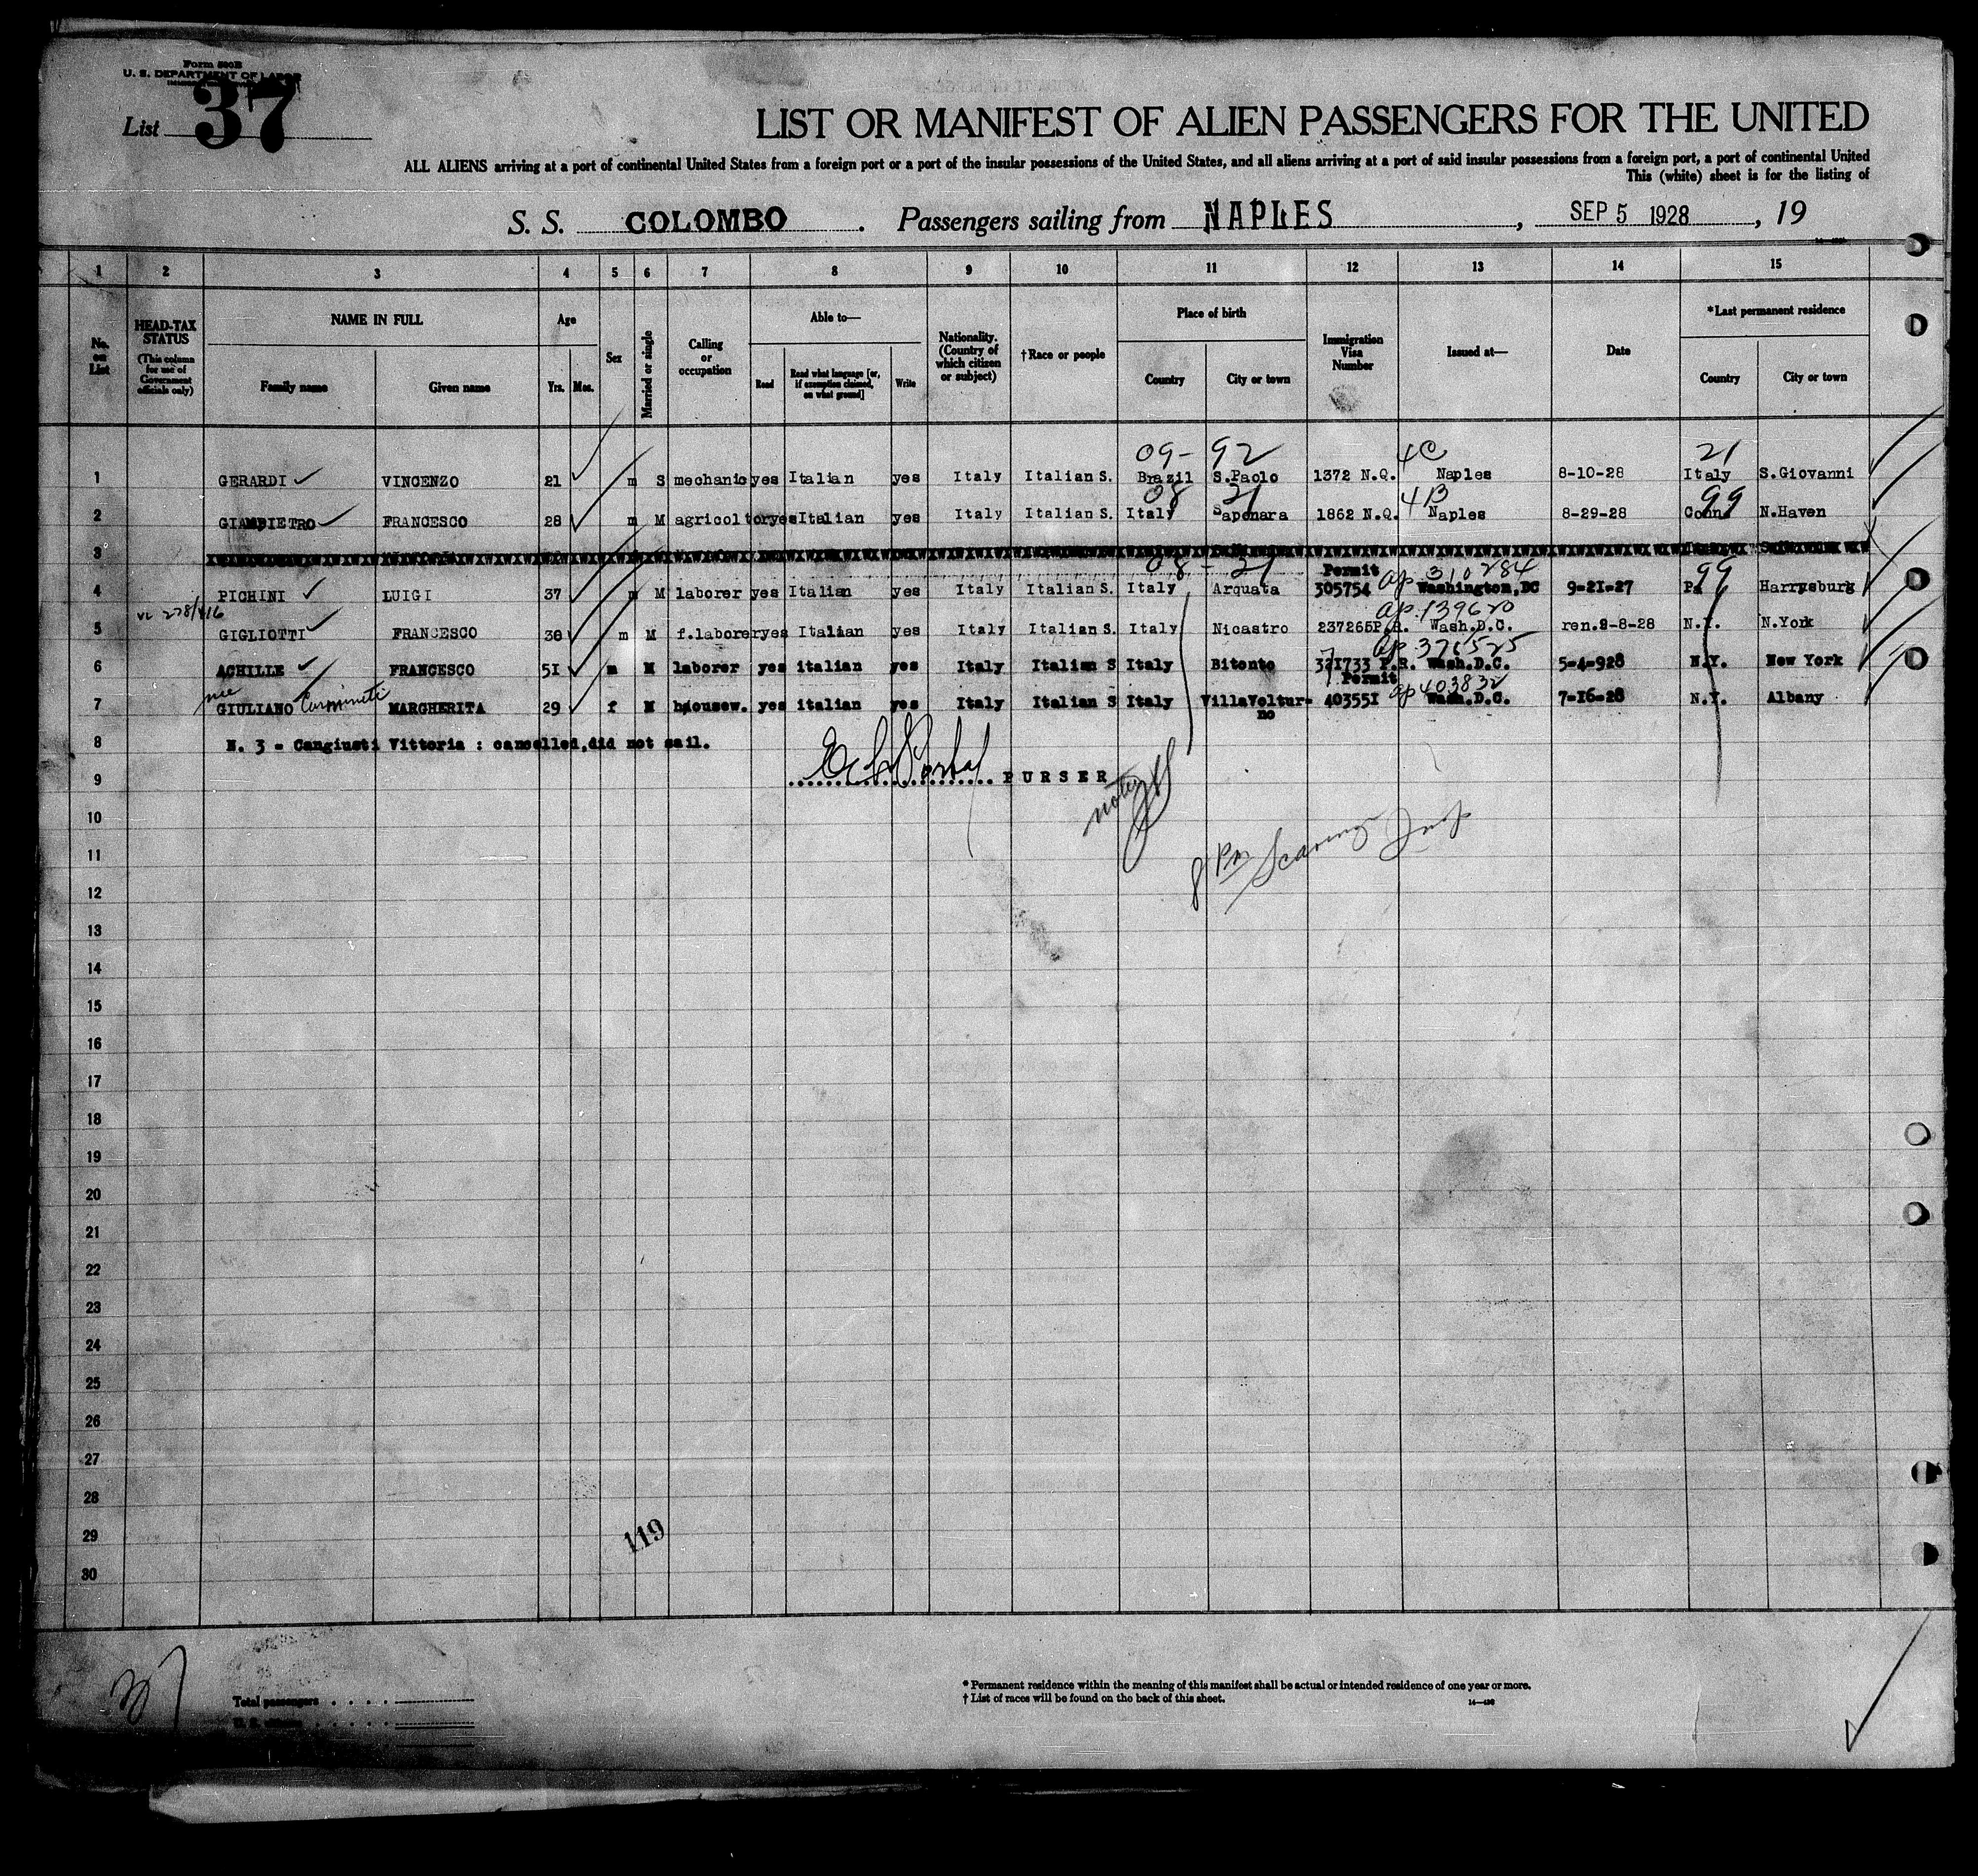 Form 500B
U. S. DEPARTMENT OF LABOR
List 37
LIST OR MANIFEST OF ALIEN PASSENGERS FOR THE UNITED
ALL ALIENS arriving at a port of continental United States from a foreign port or a port of the insular possessions of the United States, and all aliens arriving at a port of said insular possessions from a foreign port, a port of continental United
This (white) sheet is for the listing of
S. S. COLOMBO . Passengers sailing from NAPLES , SEP 5 1928 , 19
1 2 3 4 5 6 7 8 9 10 11 12 13 14 15
No. on List
HEAD-TAX STATUS (This column for use of Government officials only)
NAME IN FULL Family name Given name
Age Yrs. Mos.
Sex
Married or single
Calling or occupation
Able to— Read Read what language [or, if exemption claimed, on what ground] Write
Nationality. (Country of which citizen or subject)
†Race or people
Place of birth Country City or town
Immigration Visa Number
Issued at—
Date
*Last permanent residence Country City or town
09- 92 4C 21
1 GERARDI VINCENZO 21 m S mechanic yes Italian yes Italy Italian S. Brazil S.Paolo 1372 N.Q. Naples 8-10-28 Italy S.Giovanni
08 21 4B 99
2 GIAMBIETRO FRANCESCO 28 m M agricoltor yes Italian yes Italy Italian S. Italy Saponara 1862 N.Q. Naples 8-29-28 Conn. N.Haven
3
08 - 21 Permit ap 310284 99
4 PICHINI LUIGI 37 m M laborer yes Italian yes Italy Italian S. Italy Arquata 305754 Washington,DC 9-21-27 Pa Harrysburg
vl 278/416 ap.139620
5 GIGLIOTTI FRANCESCO 38 m M f.laborer yes Italian yes Italy Italian S. Italy Nicastro 237265P.R. Wash.D.C. ren.8-8-28 N.Y. N.York
ap.376525
6 ACHILLE FRANCESCO 51 m M laborer yes italian yes Italy Italian S Italy Bitonto 321733 P.R. Wash.D.C. 5-4-928 N.Y. New York
nee Permit ap 403832
7 GIULIANO MARGHERITA 29 f M housew. yes italian yes Italy Italian S Italy VillaVolturno 403551 Wash.D.C. 7-16-28 N.Y. Albany
8 N. 3 = Cangiusti Vittoria : cancelled,did not sail.
9 PURSER
10
11
12
13
14
15
16
17
18
19
20
21
22
23
24
25
26
27
28
29
30
119
Total passengers . . . .
* Permanent residence within the meaning of this manifest shall be actual or intended residence of one year or more.
† List of races will be found on the back of this sheet.